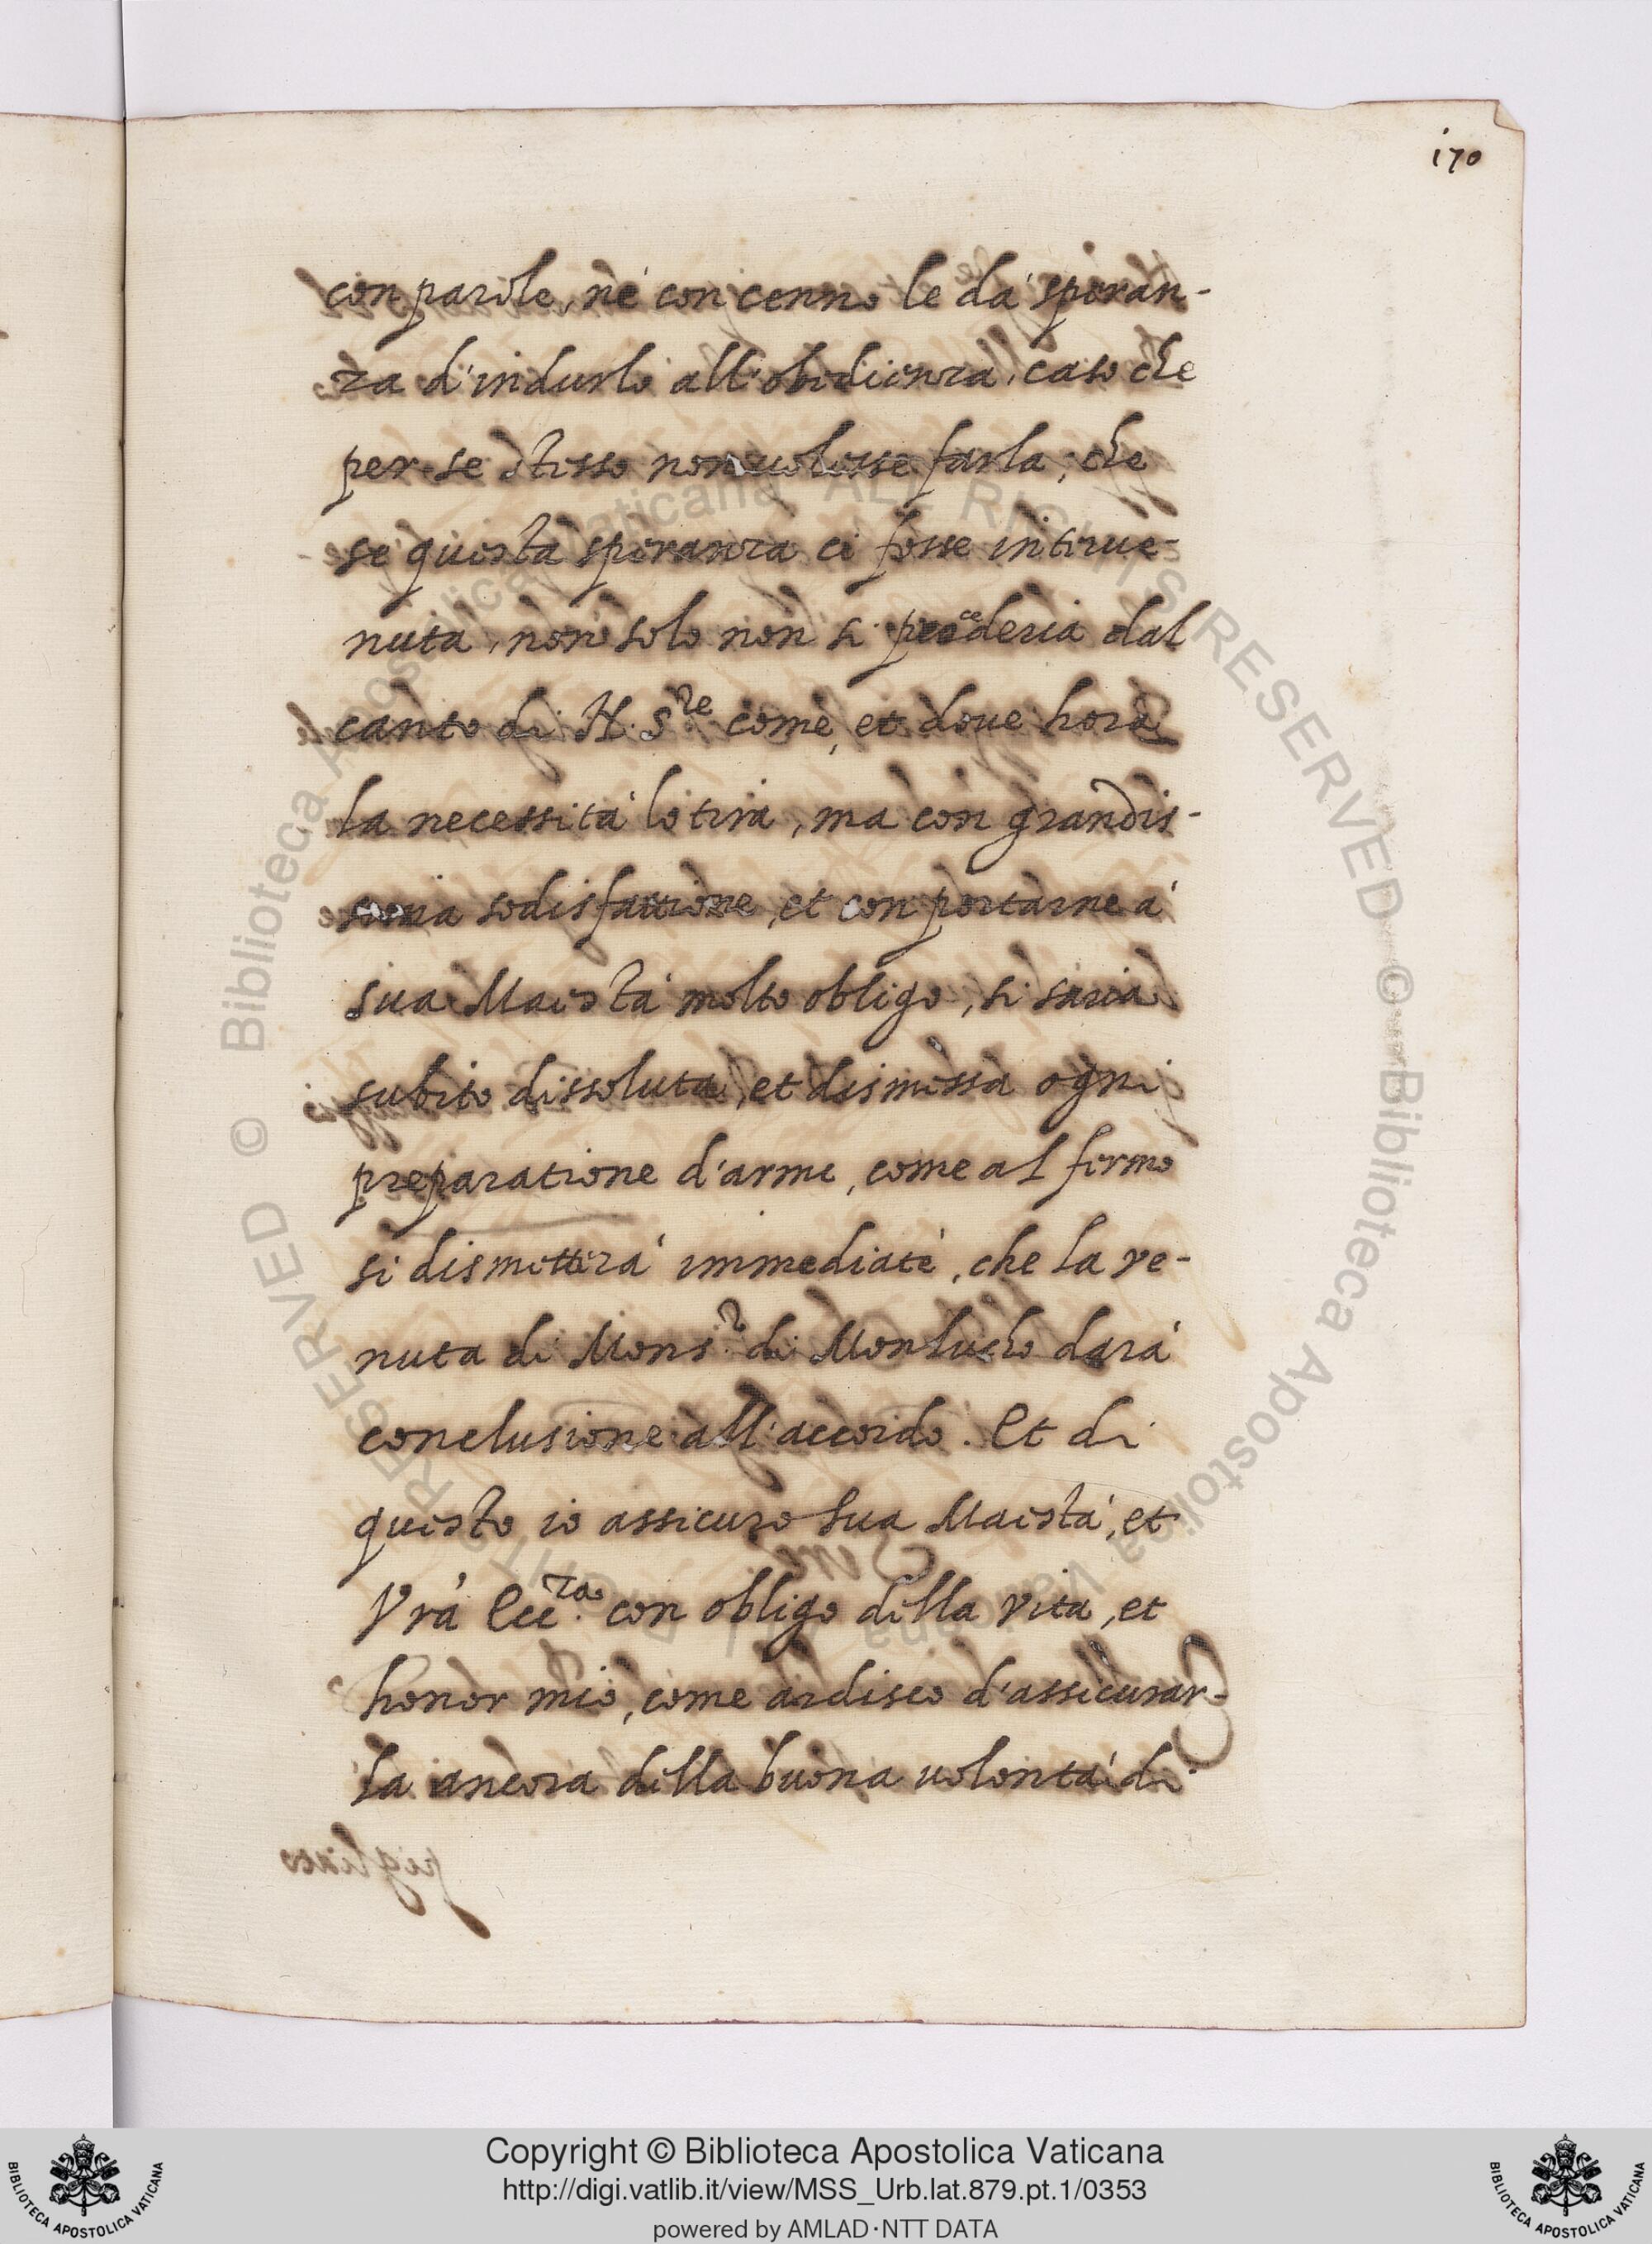 170
con parole, nè con cenno le dà speran-
za d'indurlo all'obedienza, caso che
per se stesso non uolesse farla; che
se questa speranza ci fosse interue-
nuta, non solo non si procederia dal
canto di N. S.re come, et doue hora
la necessità lo tira, ma con grandis-
sima sodisfattione, et con portarne à
sua Maestà molto obligo, si saria
subito dissoluta, et dismessa ogni
preparatione d'arme, come al fermo
si dismetterà immediatè, che la ve-
nuta di Mons.r di Monluco darà
conclusione all'accordo. Et di
questo io assicuro sua Maestà, et
Vrà Ecc.za con obligo della vita, et
honor mio, come ardisco d'assicurar-
la ancora della buona uolontà di
Biblioteca Apostolica Vaticana ALL RIGHTS RESERVED © Biblioteca Apostolica Vaticana ALL RIGHTS RESERVED ©
Copyright © Biblioteca Apostolica Vaticana
http://digi.vatlib.it/view/MSS_Urb.lat.879.pt.1/0353
powered by AMLAD·NTT DATA
BIBLIOTECA APOSTOLICA VATICANA
BIBLIOTECA APOSTOLICA VATICANA